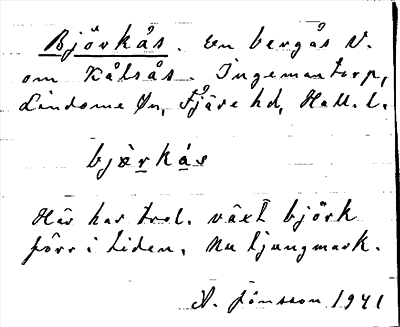 Björkås. En bergås V.
om Kålsås. Ingemantorp,
Lindome sn, Fjäre hd, Hall. l.
bjærkås
Här har trol. växt björk
förr i tiden. Nu ljungmark.
A. Jönsson 1941